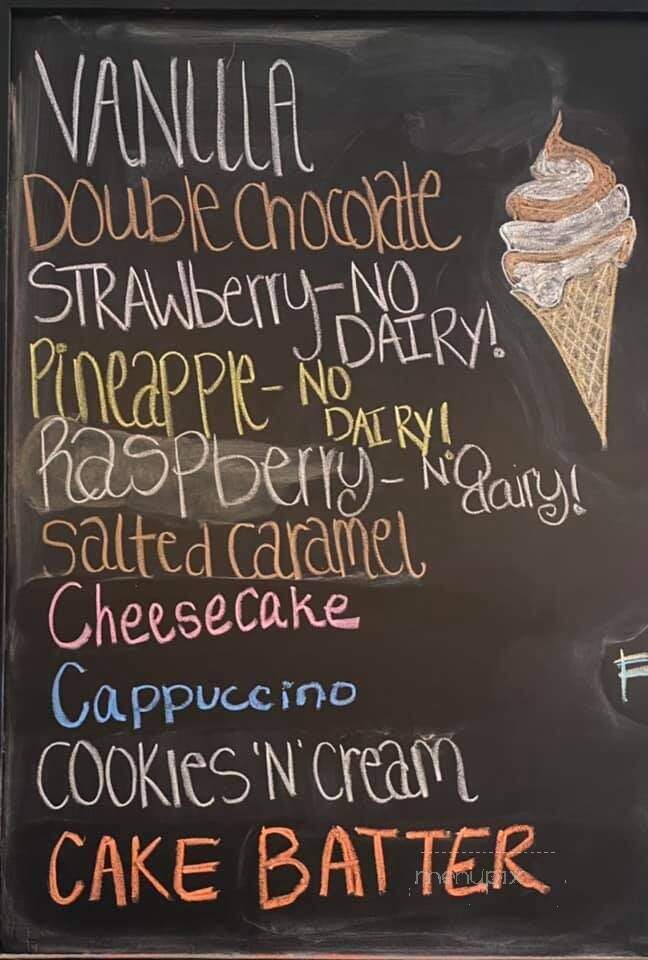 VANILLA
Double Chocolate
STRAWberry - NO
DAIRY!
Pineapple - NO
DAIRY!
Raspberry - No
dairy!
Salted Caramel
Cheesecake
F
Cappuccino
COOKIES 'N' Cream
CAKE BATTER
menupix